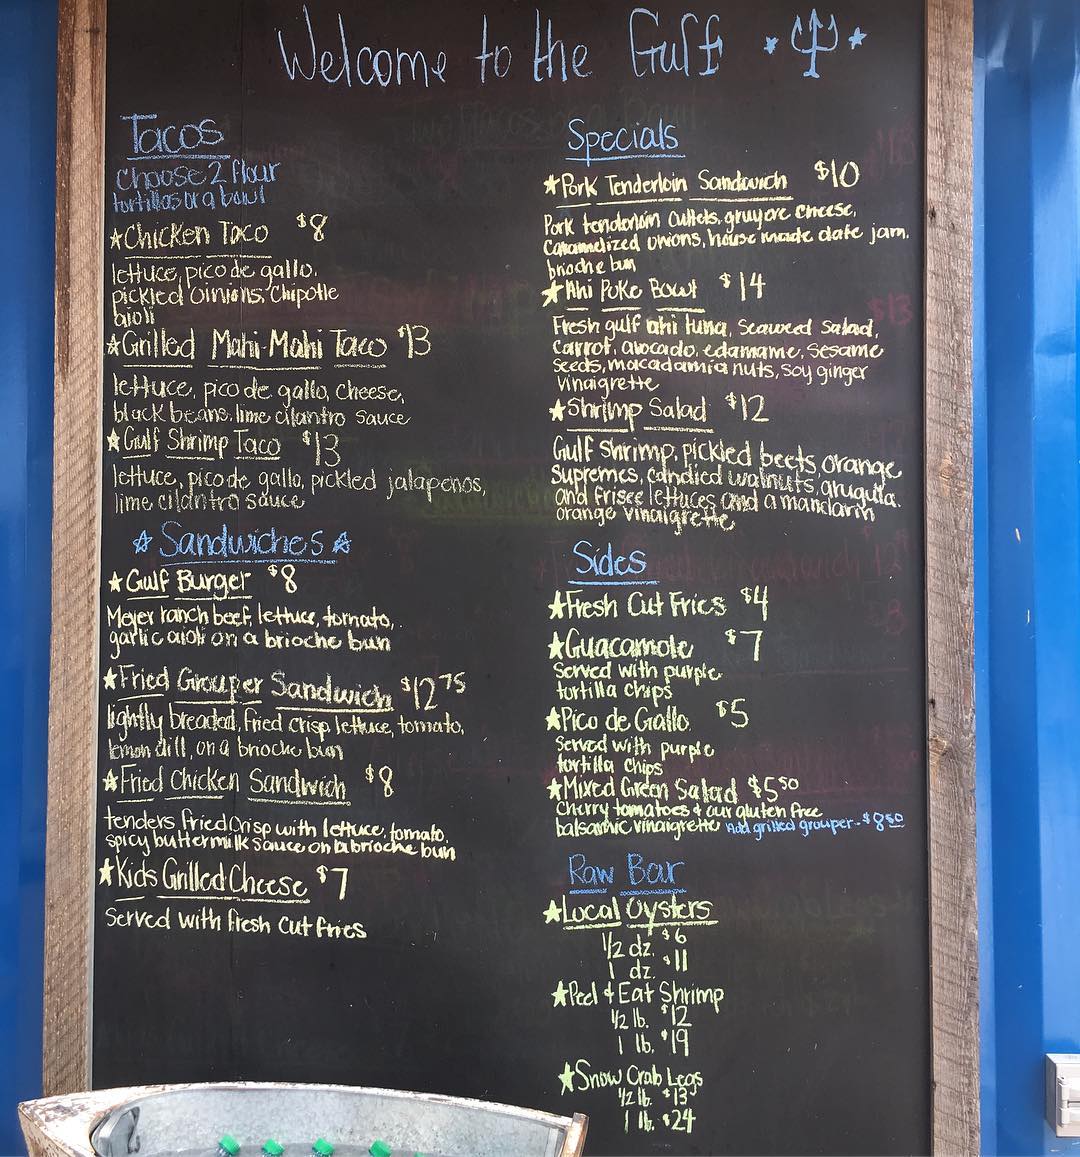 Welcome to the Gulf
Tacos
Choose 2 flour
tortillas or a bowl
Chicken Taco $8
lettuce, pico de gallo,
pickled onions, Chipotle
aioli
Grilled Mahi-Mahi Taco $13
lettuce, pico de gallo, cheese,
black beans, lime cilantro sauce
Gulf Shrimp Taco $13
lettuce, pico de gallo, pickled jalapenos,
lime cilantro sauce
Sandwiches
Gulf Burger $8
Meyer ranch beef, lettuce, tomato,
garlic aioli on a brioche bun
Fried Grouper Sandwich $12 75
lightly breaded, fried crisp, lettuce, tomato,
lemon dill, on a brioche bun
Fried Chicken Sandwich $8
tenders fried crisp with lettuce, tomato,
spicy buttermilk sauce on a brioche bun
Kids Grilled Cheese $7
Served with fresh cut fries
Specials
Pork Tenderloin Sandwich $10
Pork tenderloin cutlets, gruyere cheese,
Caramelized onions, house made date jam,
brioche bun
Ahi Poke Bowl $14
Fresh gulf ahi tuna, seaweed salad,
Carrot, avocado, edamame, sesame
seeds, macadamia nuts, soy ginger
Vinaigrette
Shrimp Salad $12
Gulf shrimp, pickled beets, orange
Supremes, candied walnuts, arugula
and frisee lettuces and a mandarin
orange vinaigrette
Sides
Fresh Cut Fries $4
Guacamole $7
Served with purple
tortilla chips
Pico de Gallo $5
Served with purple
tortilla chips
Mixed Green Salad $5 50
Cherry tomatoes & our gluten free
balsamic vinaigrette Add grilled grouper - $8 50
Raw Bar
Local Oysters
1/2 dz. $6
1 dz. $11
Peel & Eat Shrimp
1/2 lb. $12
1 lb. $19
Snow Crab Legs
1/2 lb. $13
1 lb. $24